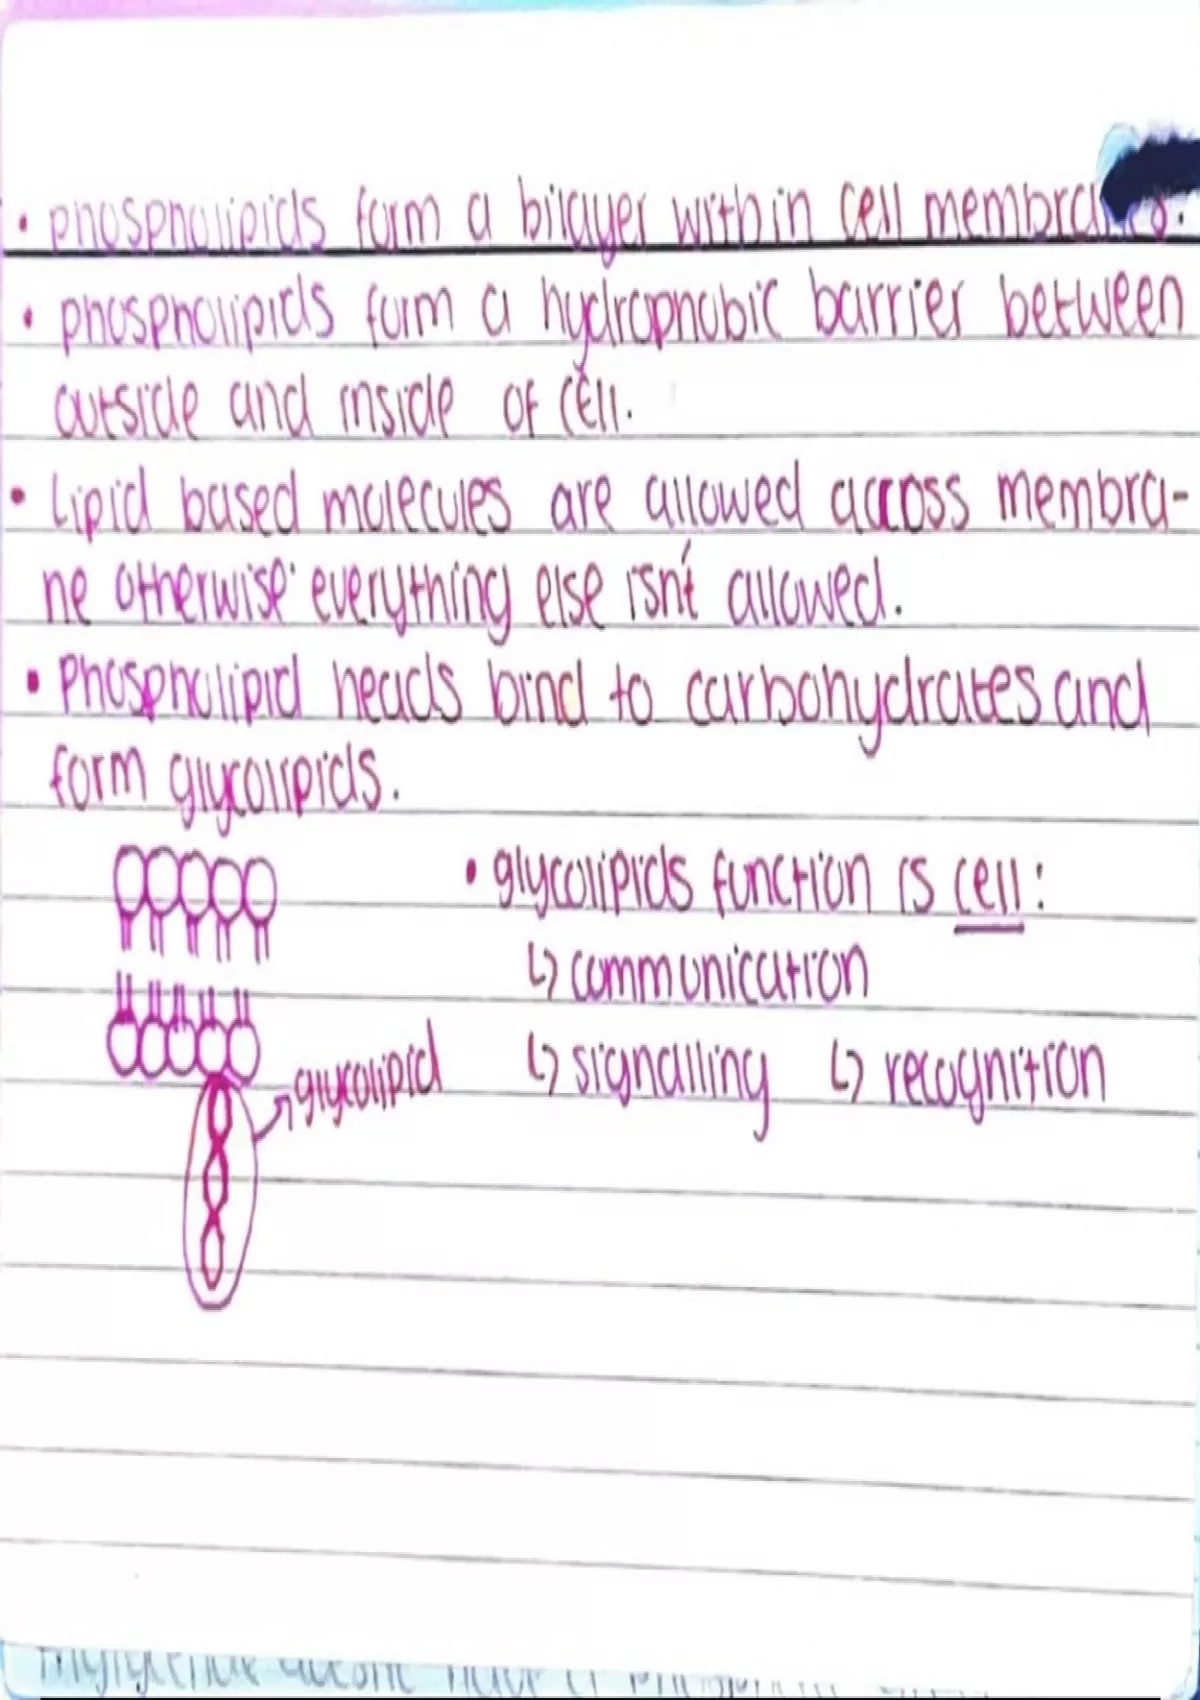 • phospholipids form a bilayer within cell membranes.
• phospholipids form a hydrophobic barrier between
outside and inside of cell.
• Lipid based molecules are allowed across membra-
ne otherwise everything else isn't allowed.
• Phospholipid heads bind to carbohydrates and
form glycolipids.
• glycolipids function is cell:
↳ communication
glycolipid
↳ signalling ↳ recognition